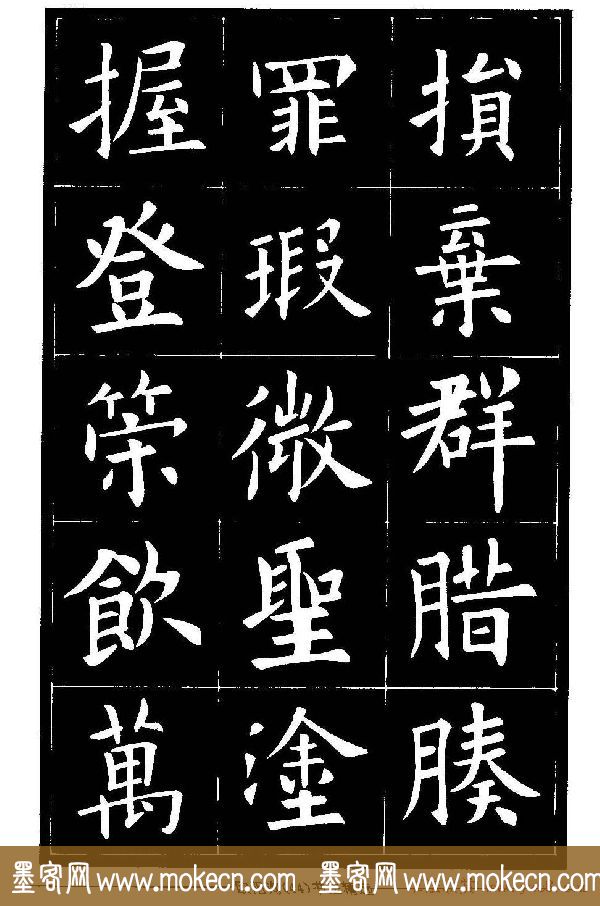 損棄群腊腠
罪瑕微聖塗
握登策飲萬
墨客网 www.mokecn.com 墨客网 www.mokecn.com